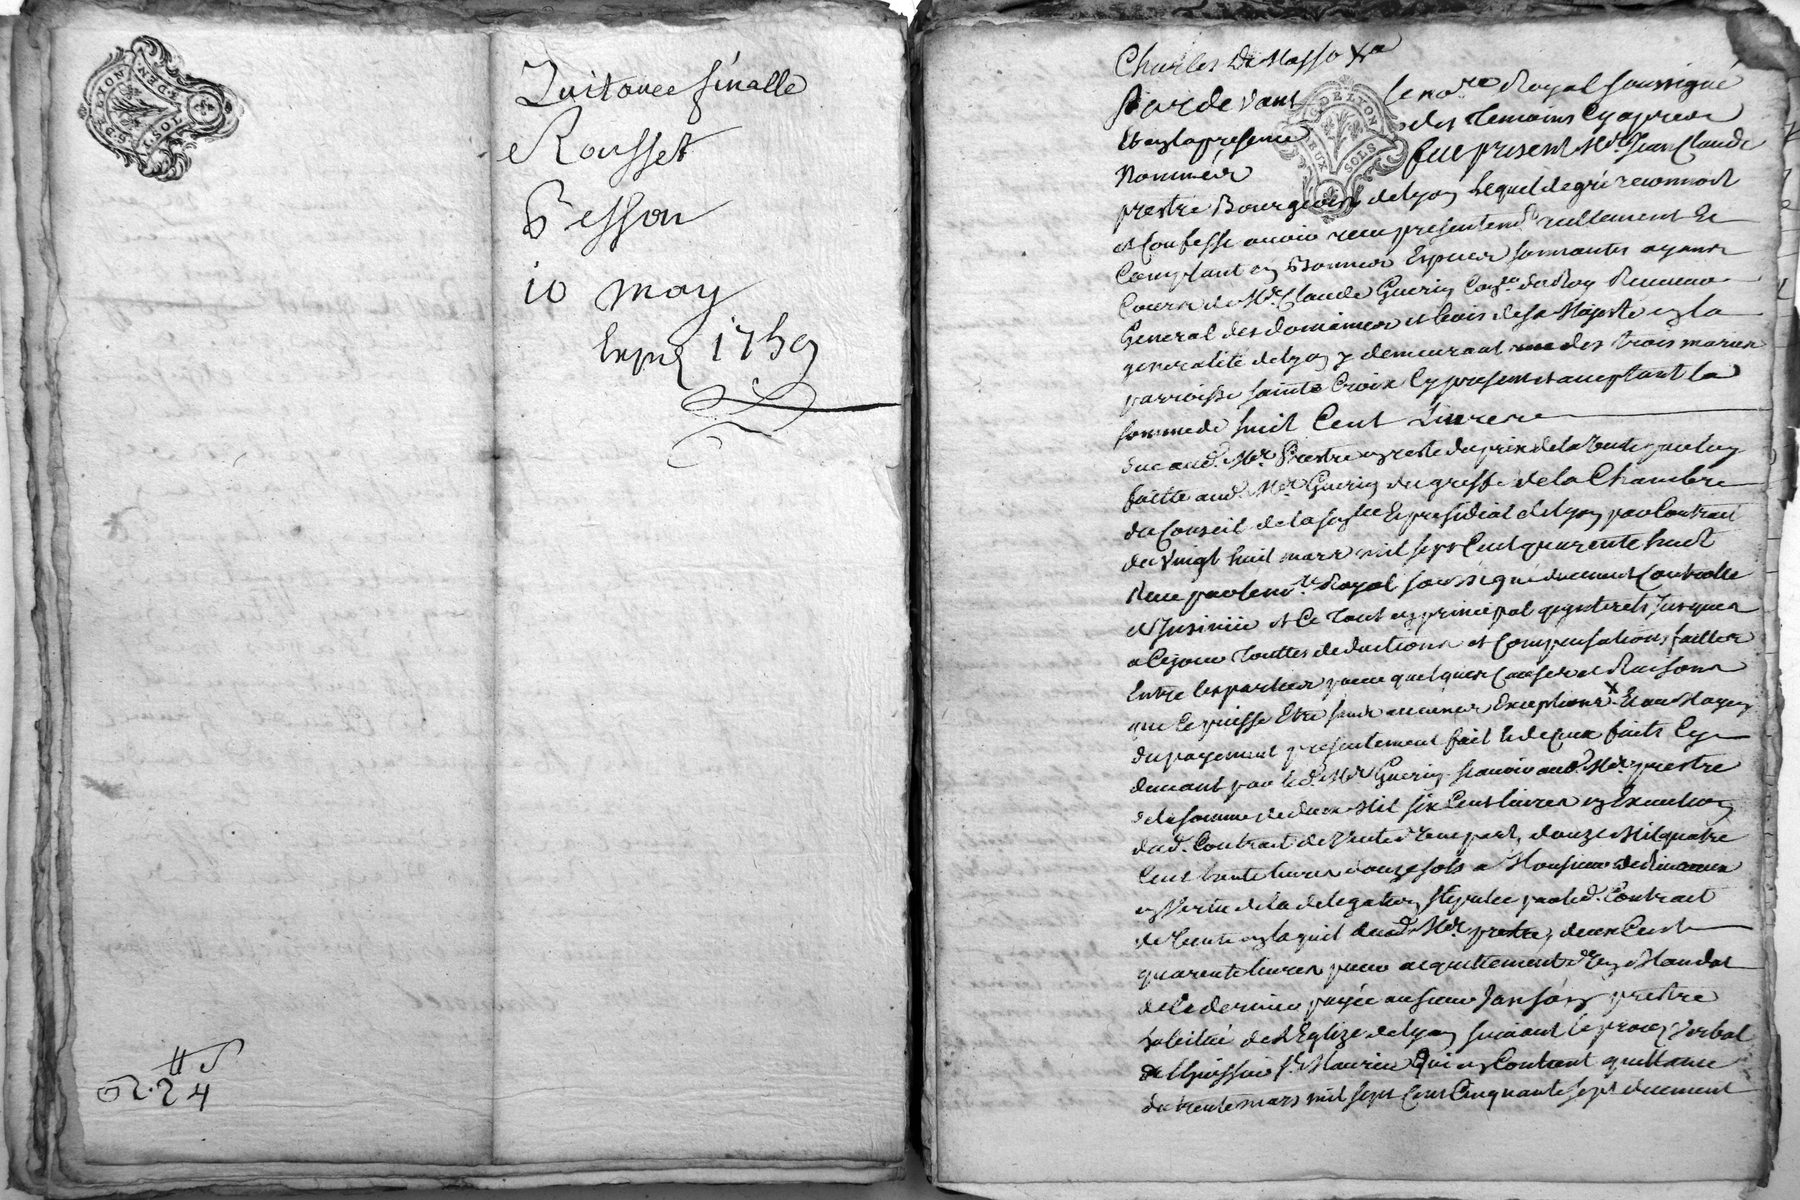 G. DE LYON
UN SOL
Quitance finalle
Rousset
Besson
10 may
Exped 1759
Charles De Masso
Pardevant le no.re Royal soussigné
Et en la presence des Temoins Cy apres
Nommés fut present M.r Jean Claude
prestre Bourgeois de Lyon Lequel de gré reconnoit
et Confesse avoir receu presentem.t reellement Et
Comptant en Bonnes Especes sonnantes ayant
Cours de M.r Claude Guerin Con.er du Roy Receveur
General des domaines et bois de sa Majesté en la
generalité de Lyon y demeurant des trois maries
parroisse sainte Croix Cy present et acceptant la
somme de huit Cent Livres
due aud. M.r Prestre en reste du prix de la vente par luy
faitte aud. M.r Guerin du greffe de la Chambre
du Conseil de la Presidial de Lyon par Contrait
du Vingt huit mars mil sept Cent quarente huit
Receu par le no.re Royal soussigné duement Controllé
et Insinüé et Ce Tout en principal qu'interets Jusques
a Cejour Touttes deductions et Compensations faittes
Entre les parties pour quelques Causes et Raisons
que Ce puisse Etre sans aucunes Exceptions Et au Moyen
du payement presentement fait & de Ceux faits Cy
devant par led. M.r Guerin scavoir aud. M.r prestre
de la somme de deux Mil six Cent livres en Execution
dud. Contrait de Vente d'une part, douze Mil quatre
Cent trente livres douze sols a Monsieur
en Vertu de la delegation stipulée par led. Contrait
de Vente en l'aquit dud. M.r prestre, deux Cent
quarente livres pour acquittement d'un Mandat
de Ce dernier payée au sieur prestre
habitué de l'Eglize de Lyon suivant le procez Verbal
de l'huissier S.t Maurice Qui en Contient quittance
du trente mars mil sept Cent Cinquante sept duement
G. DE LYON
DEUX SOLS